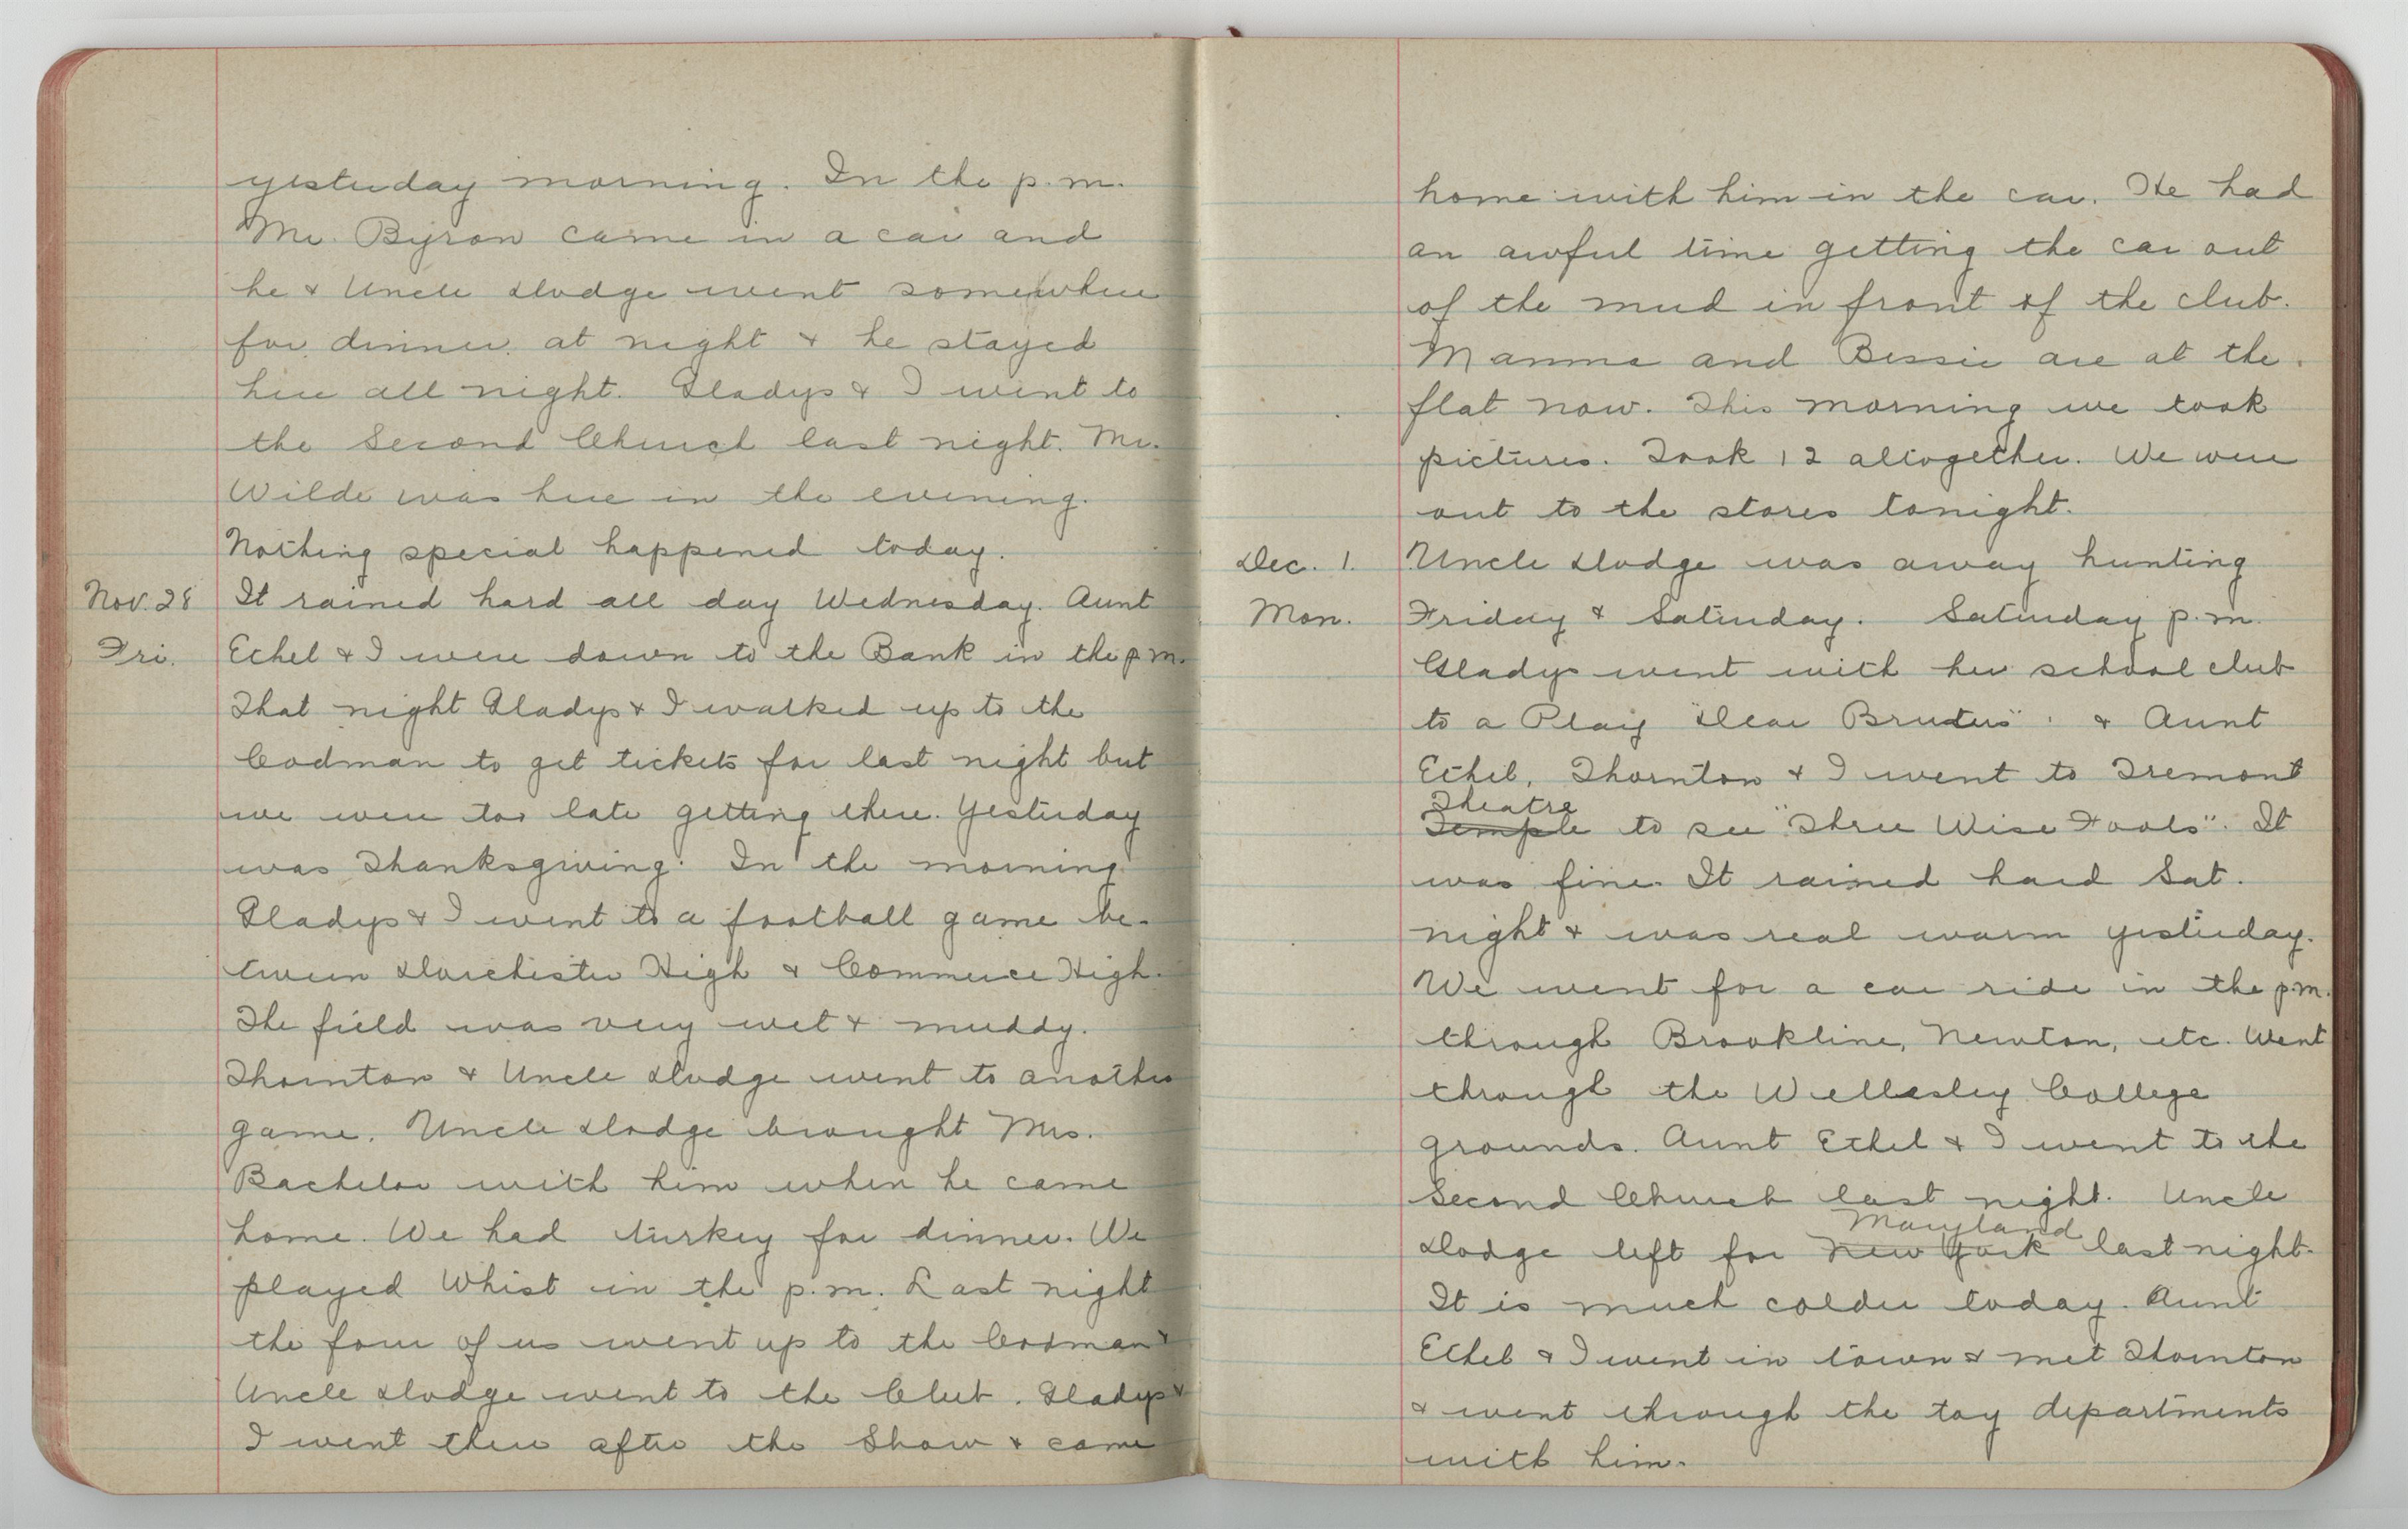 yesterday morning. In the p.m.
Mr. Byron came in a car and
he & Uncle Dodge went somewhere
for dinner at night & he stayed
here all night. Gladys & I went to
the Second Church last night. Mr.
Wilde was here in the evening.
Nothing special happened today.
Nov. 28 It rained hard all day Wednesday. Aunt
Fri. Ethel & I were down to the Bank in the p.m.
That night Gladys & I walked up to the
Codman to get tickets for last night but
we were too late getting there. Yesterday
was Thanksgiving. In the morning
Gladys & I went to a football game be-
tween Dorchester High & Commerce High.
The field was very wet & muddy.
Thornton & Uncle Dodge went to another
game. Uncle Dodge brought Mrs.
Bachelor with him when he came
home. We had turkey for dinner. We
played Whist in the p.m. Last night
the four of us went up to the Codman &
Uncle Dodge went to the Club. Gladys &
I went there after the Show & came
home with him in the car. He had
an awful time getting the car out
of the mud in front of the club.
Mamma and Bessie are at the
flat now. This morning we took
pictures. Took 12 altogether. We were
out to the stores tonight.
Dec. 1. Uncle Dodge was away hunting
Mon. Friday & Saturday. Saturday p.m.
Gladys went with her school club
to a Play "Dear Brutus" & Aunt
Ethel, Thornton & I went to Tremont
Theatre
Temple to see "Three Wise Fools". It
was fine. It rained hard Sat.
night & was real warm yesterday.
We went for a car ride in the p.m.
through Brookline, Newton, etc. Went
through the Wellesley College
grounds. Aunt Ethel & I went to the
Second Church last night. Uncle
Maryland
Dodge left for New York last night.
It is much colder today. Aunt
Ethel & I went in town & met Thornton
& went through the toy departments
with him.